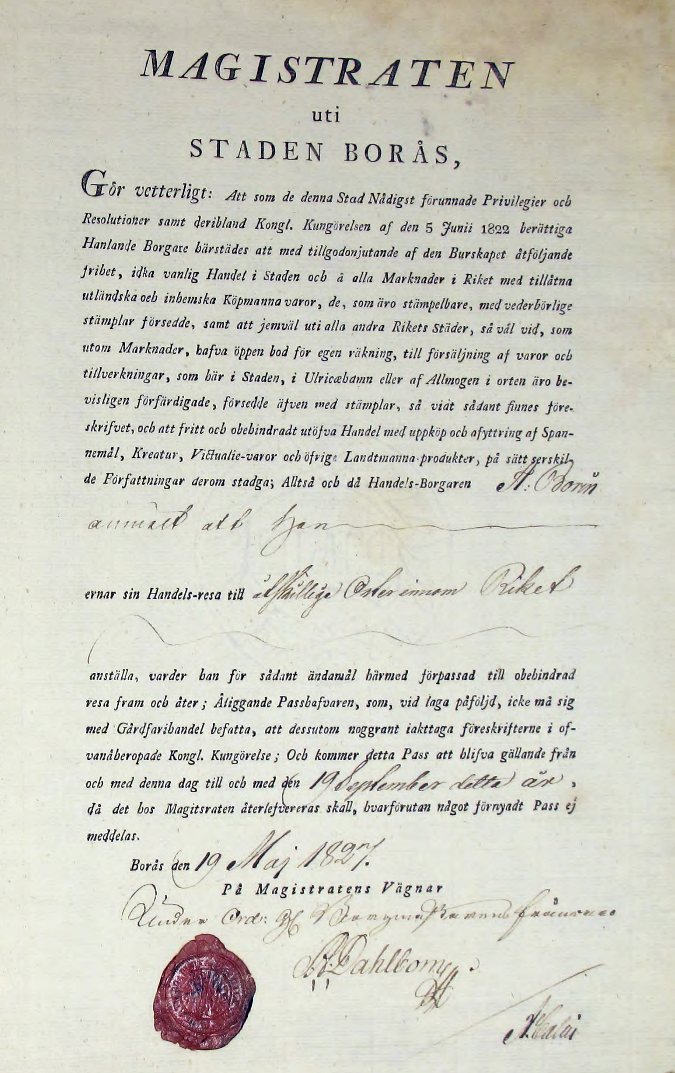 MAGISTRATEN
uti
STADEN BORÅS,
Gör vetterligt: Att som de denna Stad Nådigst förunnade Privilegier och
Resolutioner samt deribland Kongl. Kungörelsen af den 5 Junii 1822 berättiga
Hanlande Borgare härstädes att med tillgodonjutande af den Burskapet åtföljande
frihet, idka vanlig Handel i Staden och å alla Marknader i Riket med tillåtna
utländska och inhemska Köpmanna varor, de, som äro stämpelbare, med vederbörlige
stämplar försedde, samt att jemväl uti alla andra Rikets Städer, så väl vid, som
utom Marknader, hafva öppen bod för egen räkning, till försäljning af varor och
tillverkningar, som här i Staden, i Ulricæhamn eller af Allmogen i orten äro be-
visligen förfärdigade, försedde äfven med stämplar, så vidt sådant finnes före-
skrifvet, och att fritt och obehindradt utöfva Handel med uppköp och afyttring af Span-
nemål, Kreatur, Victualie-varor och öfrige Landtmanna-produkter, på sätt serskil-
de Författningar derom stadga; Alltså och då Handels-Borgaren A: Odorin
anmält att han
ernar sin Handels-resa till åtskillige Orter innom Riket
anställa, varder han för sådant ändamål härmed förpassad till obehindrad
resa fram och åter; Åliggande Passhafvaren, som, vid laga påföljd, icke må sig
med Gårdfarihandel befatta, att dessutom noggrant iakttaga föreskrifterne i of-
vanåberopade Kongl. Kungörelse; Och kommer detta Pass att blifva gällande från
och med denna dag till och med den 19 September detta år,
då det hos Magitsraten återlefvereras skall, hvarförutan något förnyadt Pass ej
meddelas.
Borås den 19 Maj 1827.
På Magistratens Vägnar
Under
Dahlbom